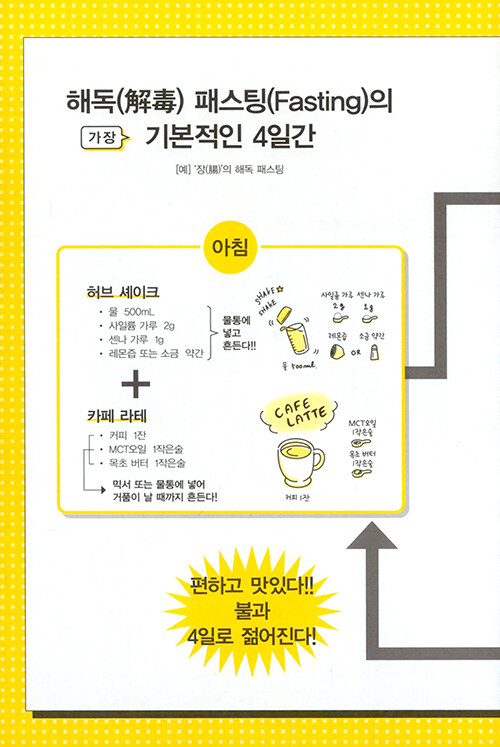 해독(解毒) 패스팅(Fasting)의
가장 기본적인 4일간
[예] '장(腸)'의 해독 패스팅
아침
허브 셰이크
• 물 500mL
• 사일륨 가루 2g
• 센나 가루 1g
• 레몬즙 또는 소금 약간
물통에
넣고
흔든다!!
SHAKE SHAKE
물 500mL
사일륨 가루
2g
센나 가루
1g
레몬즙
OR
소금 약간
+
카페 라테
• 커피 1잔
• MCT오일 1작은술
• 목초 버터 1작은술
믹서 또는 물통에 넣어
거품이 날 때까지 흔든다!
CAFE
LATTE
커피 1잔
MCT오일
1작은술
목초 버터
1작은술
편하고 맛있다!!
불과
4일로 젊어진다!